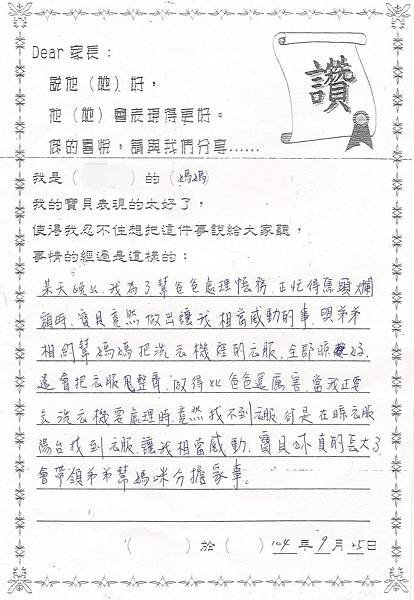 Dear 家長：
讚
說他（她）好，
他（她）會表現得更好。
您的喜悅，請與我們分享……
我是（　　　）的（媽媽）
我的寶貝表現的太好了，
使得我忍不住想把這件事說給大家聽，
事情的經過是這樣的：
某天晚上，我為了幫爸爸處理帳務，正忙得焦頭爛
額時，寶貝竟然做出讓我相當感動的事，與弟弟
相約幫媽媽把洗衣機裡的衣服，全部晾好，
還會把衣服甩整齊，做得比爸爸還厲害，當我正要
去洗衣機要處理時，竟然找不到衣服，卻是在晾衣服
陽台找到衣服，讓我相當感動，寶貝你真的長大了
會帶領弟弟幫媽咪分擔家事。
（　　　）於（　　）104年9月25日